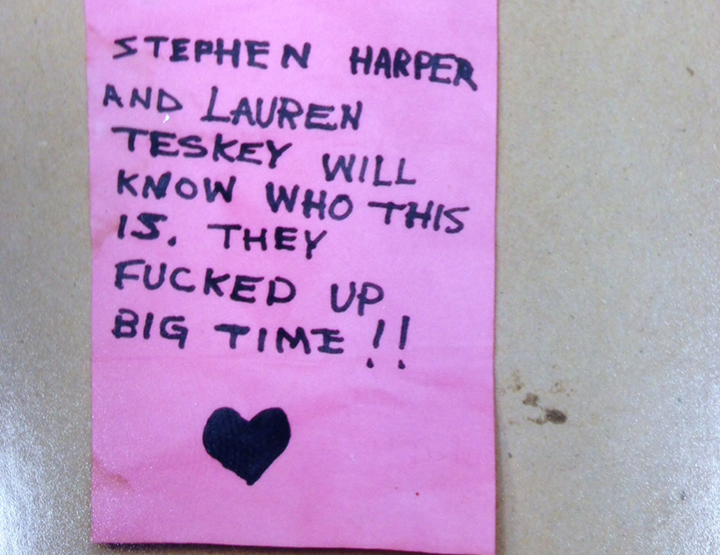 STEPHEN HARPER
AND LAUREN
TESKEY WILL
KNOW WHO THIS
IS. THEY
FUCKED UP
BIG TIME!!